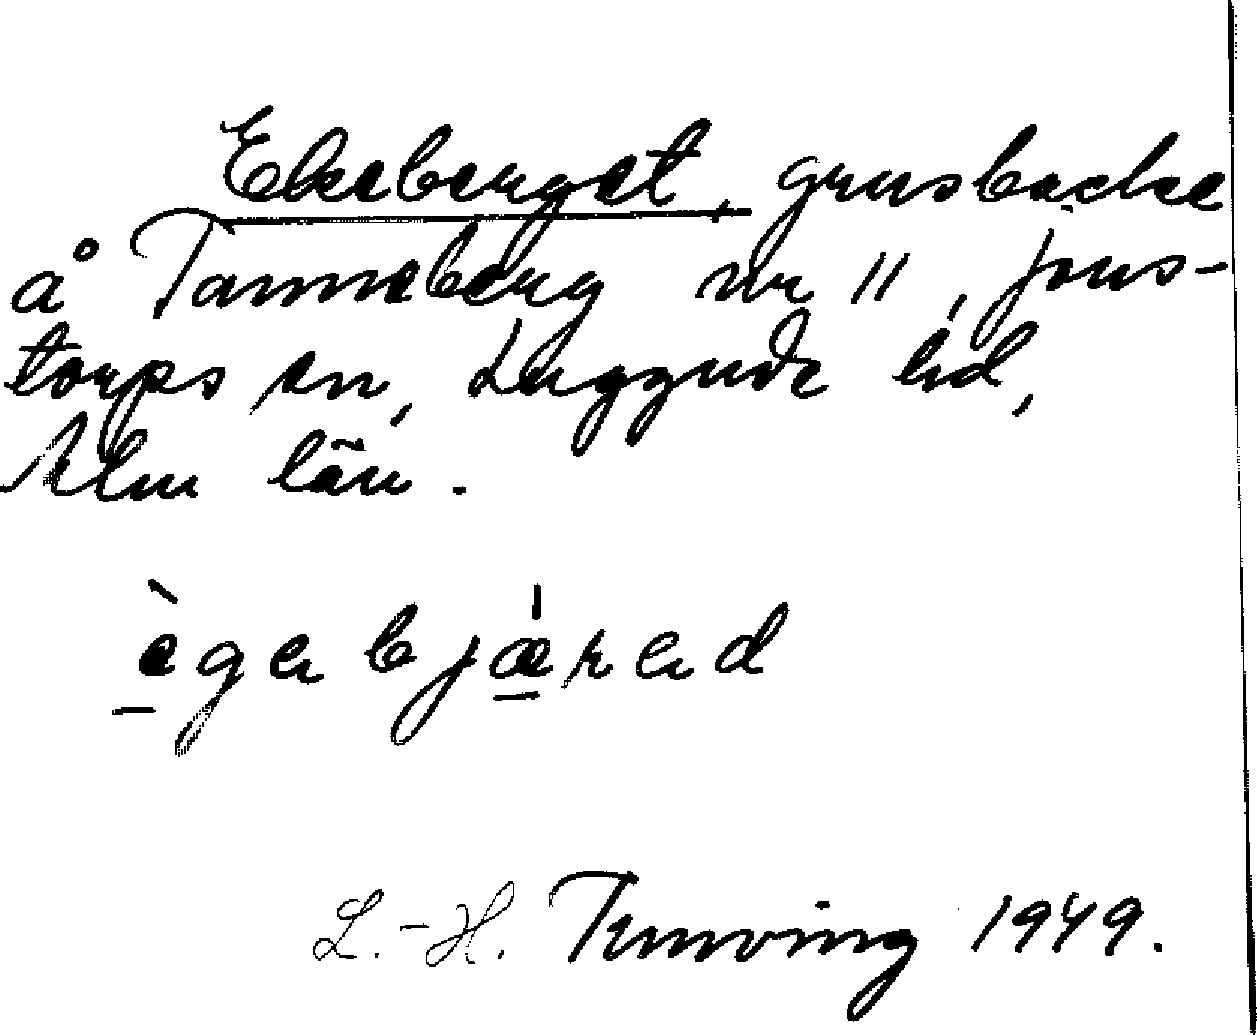 Ekeberget, grusbacke
å Tanneberg nr 11, Jons-
torps sn, Luggude hd,
Mlm län.
ègabjǽrad
L.-H. 1949.